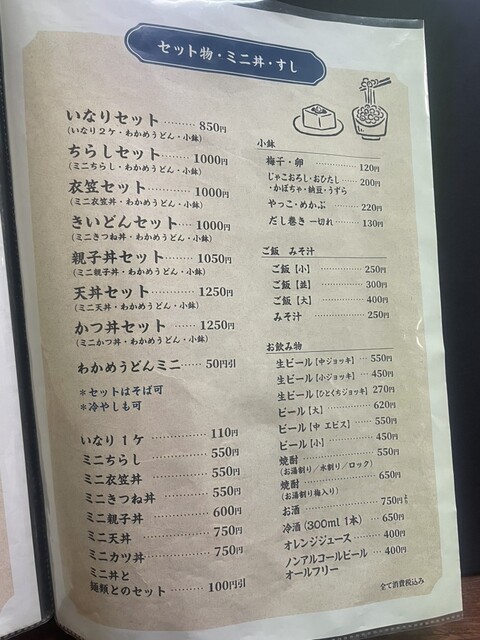 セット物・ミニ丼・すし
いなりセット ……… 850円
(いなり2ケ・わかめうどん・小鉢)
ちらしセット ……… 1000円
(ミニちらし・わかめうどん・小鉢)
衣笠セット ……… 1000円
(ミニ衣笠丼・わかめうどん・小鉢)
きいどんセット …… 1000円
(ミニきつね丼・わかめうどん・小鉢)
親子丼セット ……… 1050円
(ミニ親子丼・わかめうどん・小鉢)
天丼セット ……… 1250円
(ミニ天丼・わかめうどん・小鉢)
かつ丼セット ……… 1250円
(ミニかつ丼・わかめうどん・小鉢)
わかめうどんミニ …… 50円引
*セットはそば可
*冷やしも可
いなり 1ケ ……… 110円
ミニちらし ……… 550円
ミニ衣笠丼 ……… 550円
ミニきつね丼 ……… 550円
ミニ親子丼 ……… 600円
ミニ天丼 ……… 750円
ミニカツ丼 ……… 750円
ミニ丼と
麺類とのセット ……… 100円引
小鉢
梅干・卵 ……… 120円
じゃこおろし・おひたし …… 200円
・かぼちゃ・納豆・うずら
やっこ・めかぶ ……… 220円
だし巻き 一切れ ……… 130円
ご飯 みそ汁
ご飯【小】 ……… 250円
ご飯【並】 ……… 300円
ご飯【大】 ……… 400円
みそ汁 ……… 250円
お飲み物
生ビール【中ジョッキ】 …… 550円
生ビール【小ジョッキ】 …… 450円
生ビール【ひとくちジョッキ】 270円
ビール【大】 ……… 620円
ビール【中 エビス】 ……… 550円
ビール【小】 ……… 450円
焼酎 ……… 550円
(お湯割り/水割り/ロック)
焼酎 ……… 650円
(お湯割り梅入り)
お酒 ……… 750円
冷酒(300ml 1本) …… 650円
オレンジジュース ……… 400円
ノンアルコールビール …… 400円
オールフリー
全て消費税込み